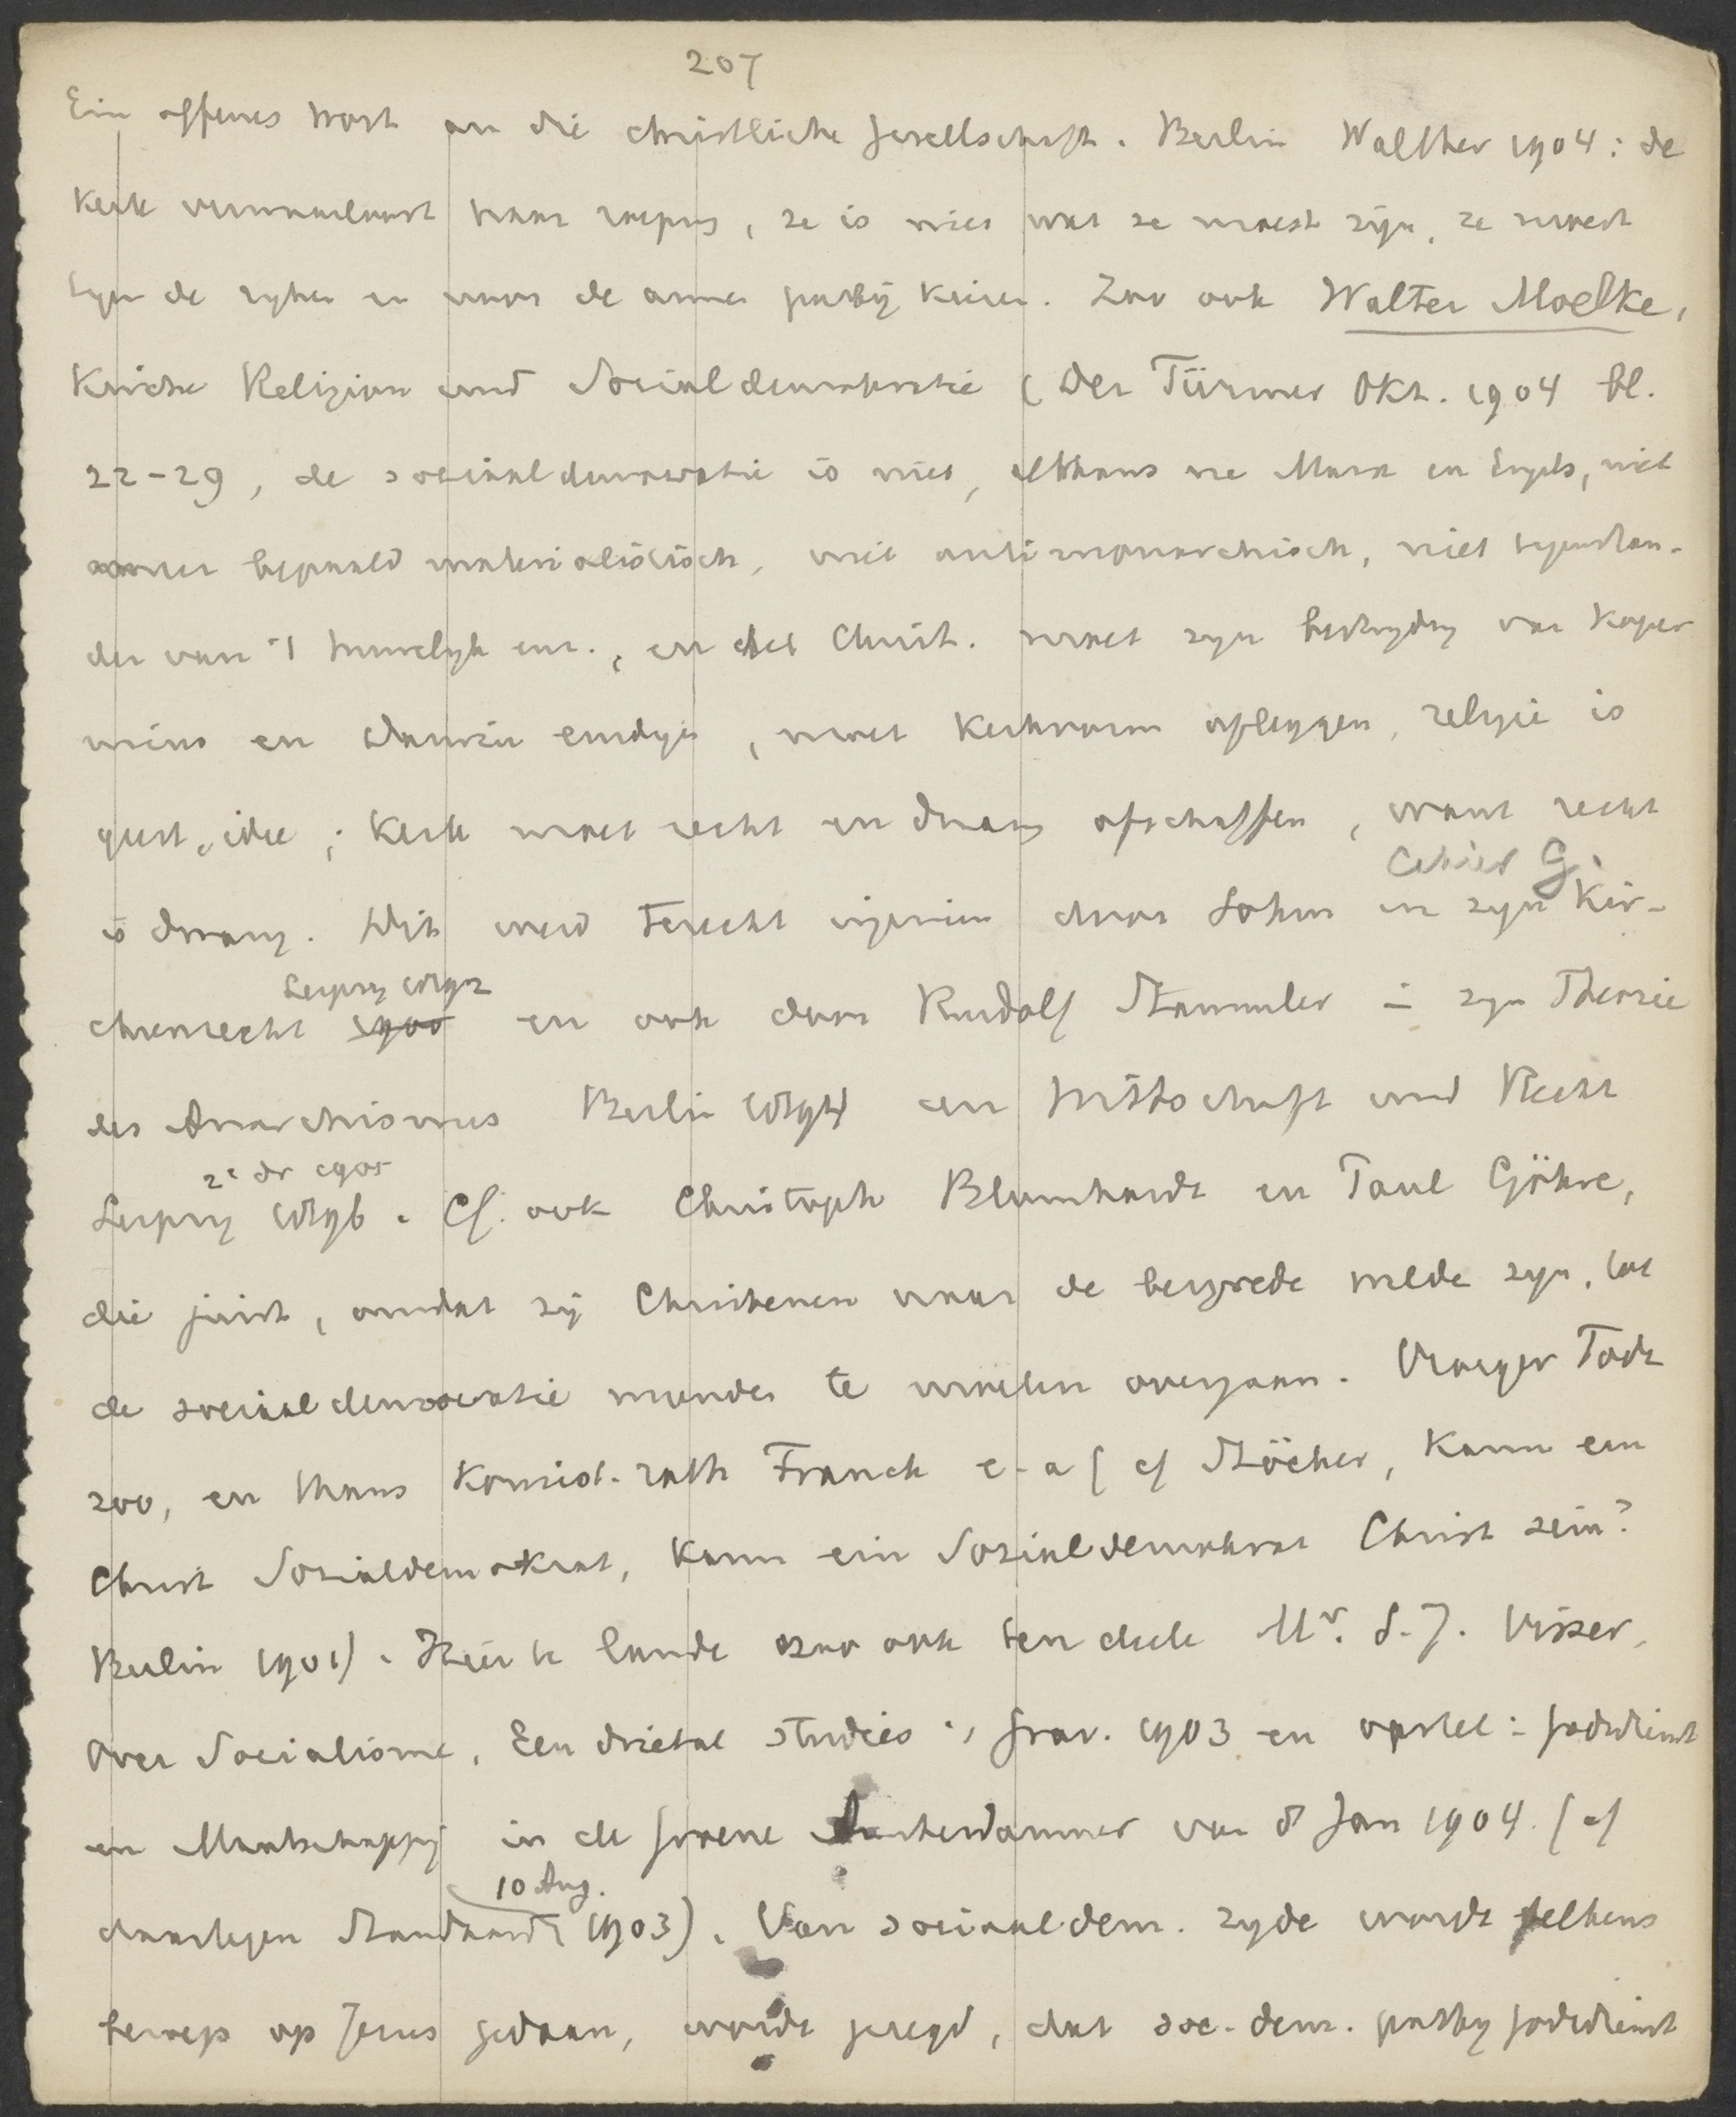 207
Ein offenes Wort an die christliche Gesellschaft. Berlin Walther 1904: de
kerk verwaarloost haar roeping, ze is niet wat ze moest zijn, ze moest
tegen de ryken en voor de armen partij kiezen. Zoo ook Walter Moelke,
Kirche Religion und Socialdemokratie (Der Türmer Okt. 1904 bl.
22-29, de sociaaldemocratie is niet, althans na Marx en Engels, niet
meer bepaald materialistisch, niet antimonarchisch, niet tegenstan-
der van 't huwelyk enz., en het Christ. moet zyn bestryding van Koper
nicus en Darwin eindigen, moet kerkvorm afleggen, religie is
geest, idee; kerk moet recht en dwang afschaffen, want recht
is dwang. Dit werd terecht ingezien door Sohm in zyn Kir-
chenrecht Leipzig 1892 en ook door Rudolf Stammler in zyn Theorie
des Anarchismus Berlin 1894 en Wirtschaft und Recht
2e dr 1905
Leipzig 1896. Cf. ook Christoph Blumhardt en Paul Göhre,
die juist, omdat zij Christenen naar de bergrede wilde zyn, tot
de sociaaldemocratie meenden te moeten overgaan. Vroeger Todt
zoo, en thans Konsist. rath Franck e.a (cf Stöcker, Kann ein
Christ Sozialdemokrat, kann ein Sozialdemokrat Christ sein?
Berlin 1901). Hier te lande zoo ook ten deele Mr. S. J. Visser,
Over Socialisme, Een drietal studies, 's Grav. 1903 en opstel: Godsdienst
en Maatschappij in de Groene Amsterdammer van 8 Jan 1904. (cf
10 Aug.
daartegen Standaard 1903). Van sociaaldem. zyde wordt telkens
beroep op Jezus gedaan, wordt gezegd, dat soc. dem. partij godsdienst